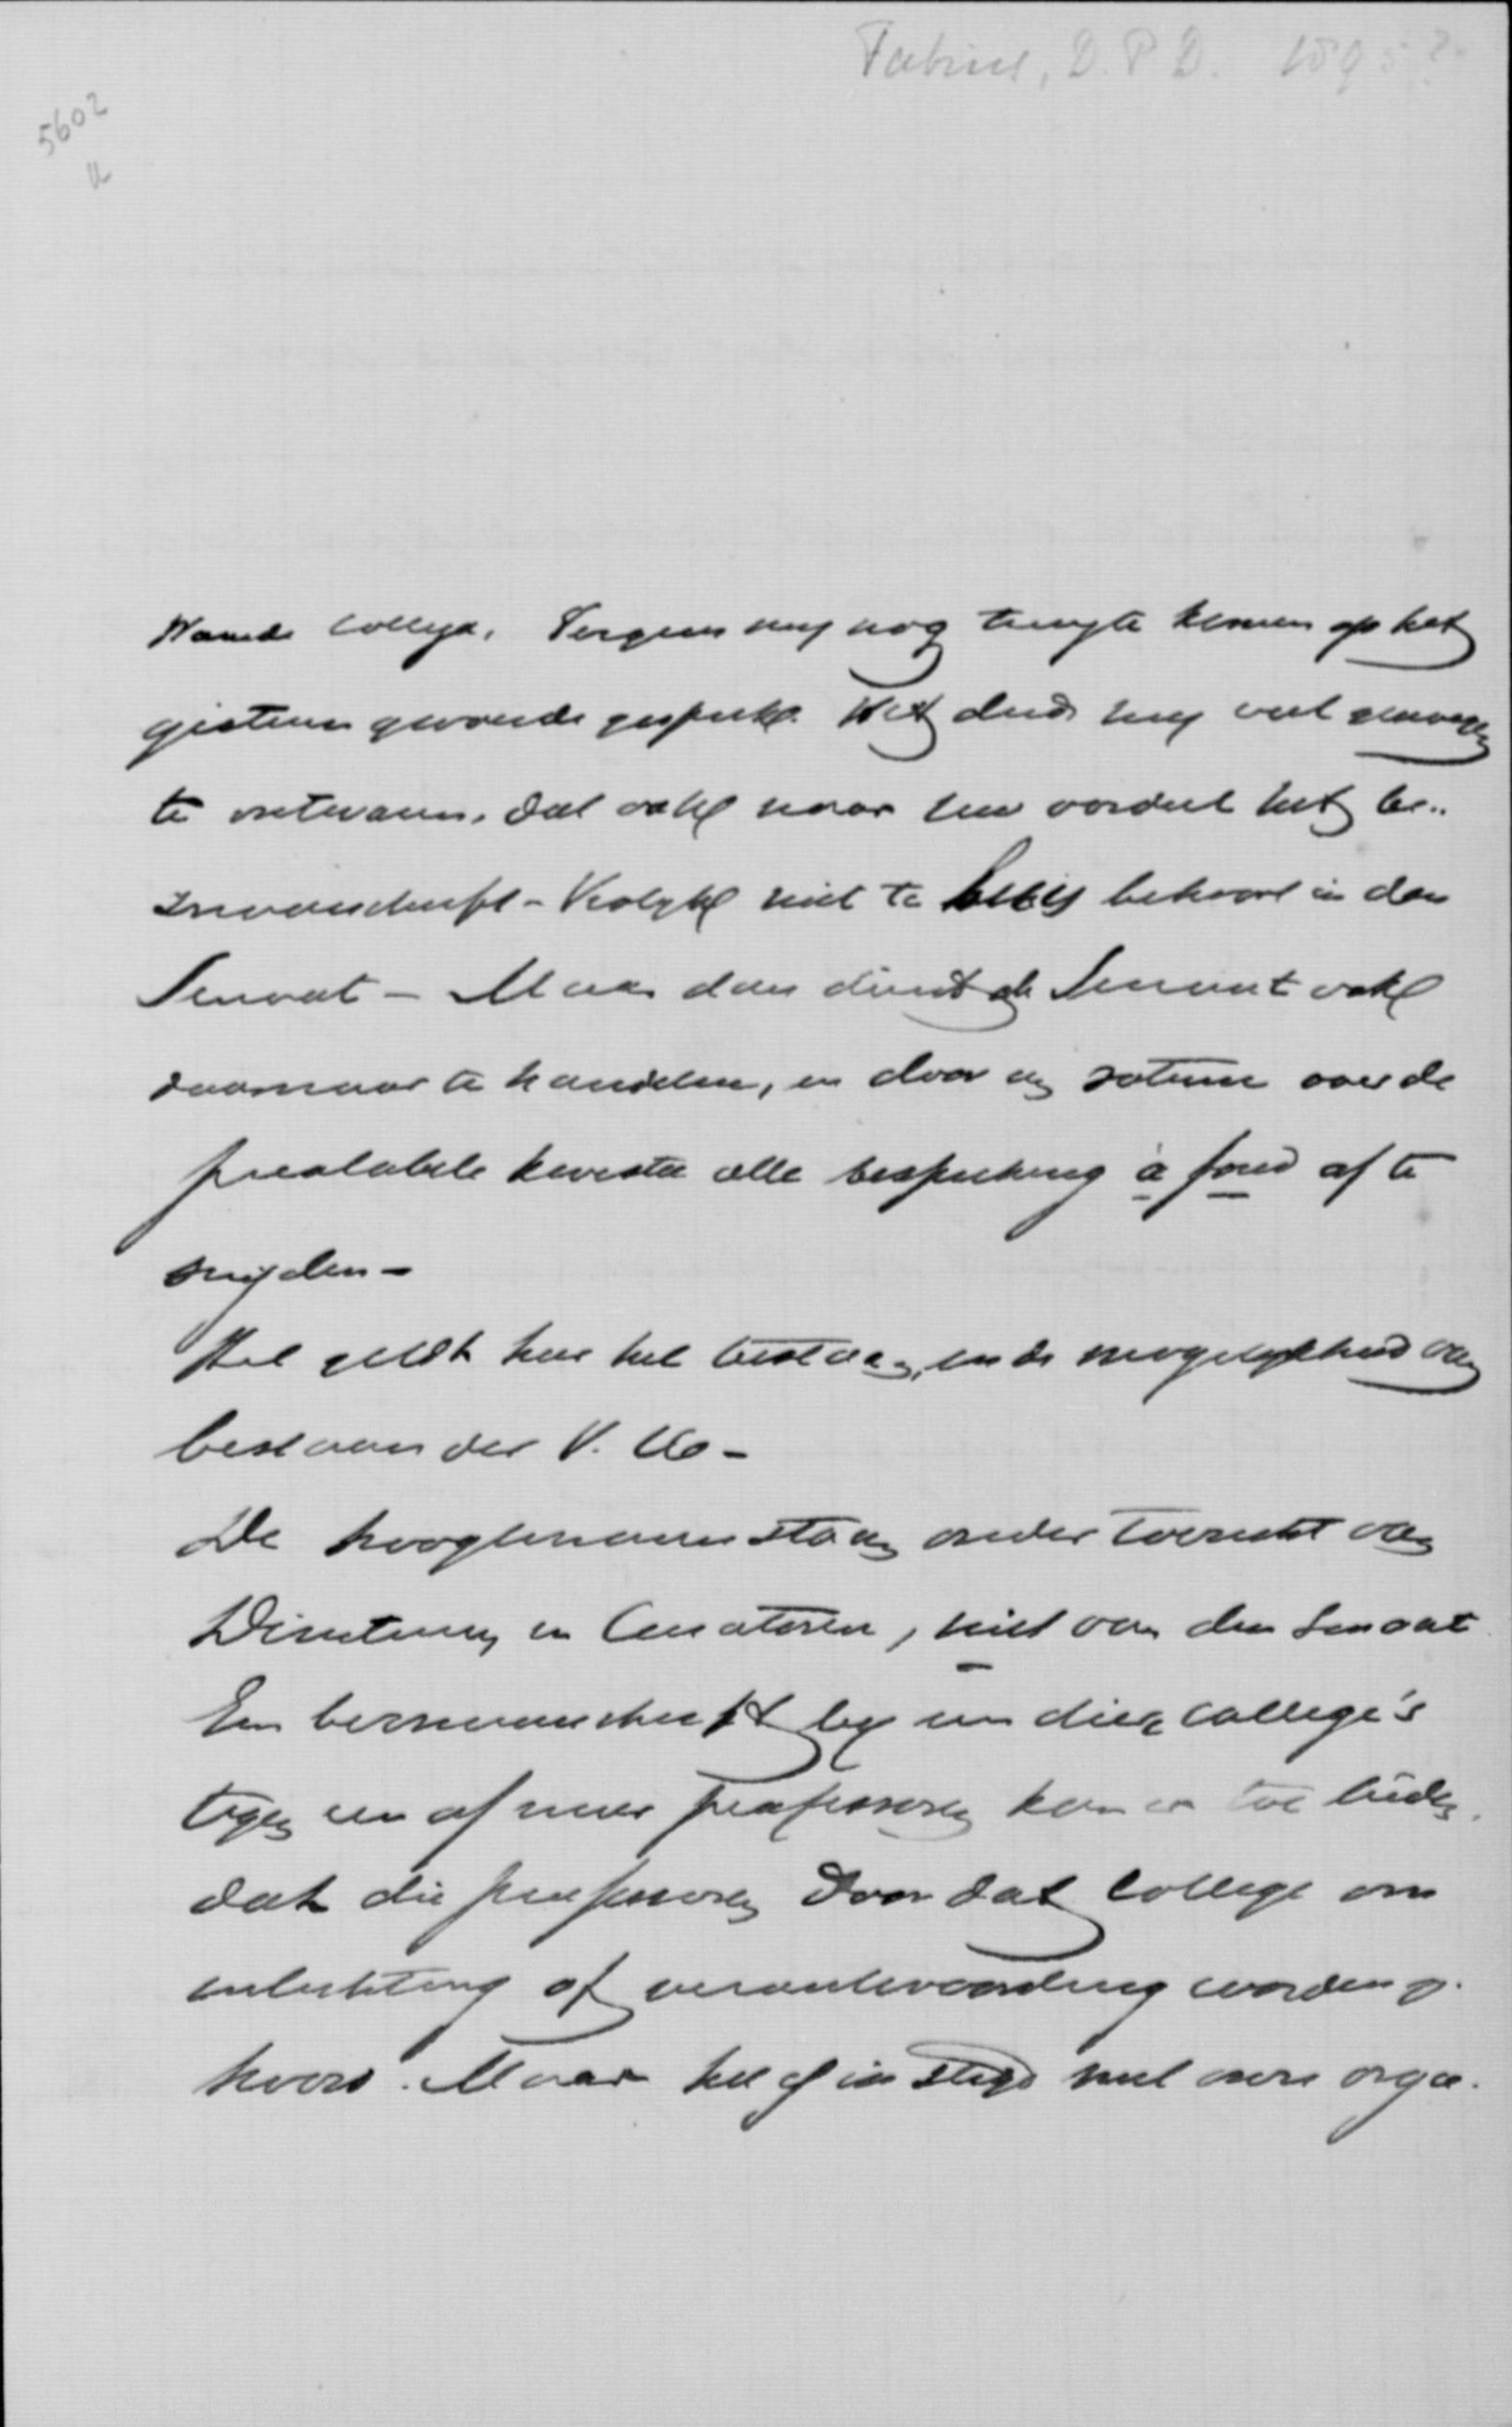 Fabius, D.P.D. 1895?
5602
Waarde Collega, Vergun mij nog terug te komen op het
gisteren gevoerde gesprek. Het deed mij veel genoegen
te ontwaren, dat ook naar Uw oordeel het be-
zwaarschrift-Krolykel niet te beslis behoort in den
Senaat - Maar dan dient de Senaat ook
daarnaar te handelen, en door een votum over de
prealabele kwestie alle bespreking à fond af te
snijden -
Het geldt hier het bestaan, en de mogelykheid van
bestaan der V. U. -
De hoogleeraren staan onder toezicht van
Directeuren en Curatoren, niet van den Senaat
Een bezwaarschrift by een dier college's
tegen een of meer professoren kan er toe leiden,
dat die professoren door dat College om
inlichting of verantwoording worden ge-
hoord. Maar het is in strijd met onze orga-